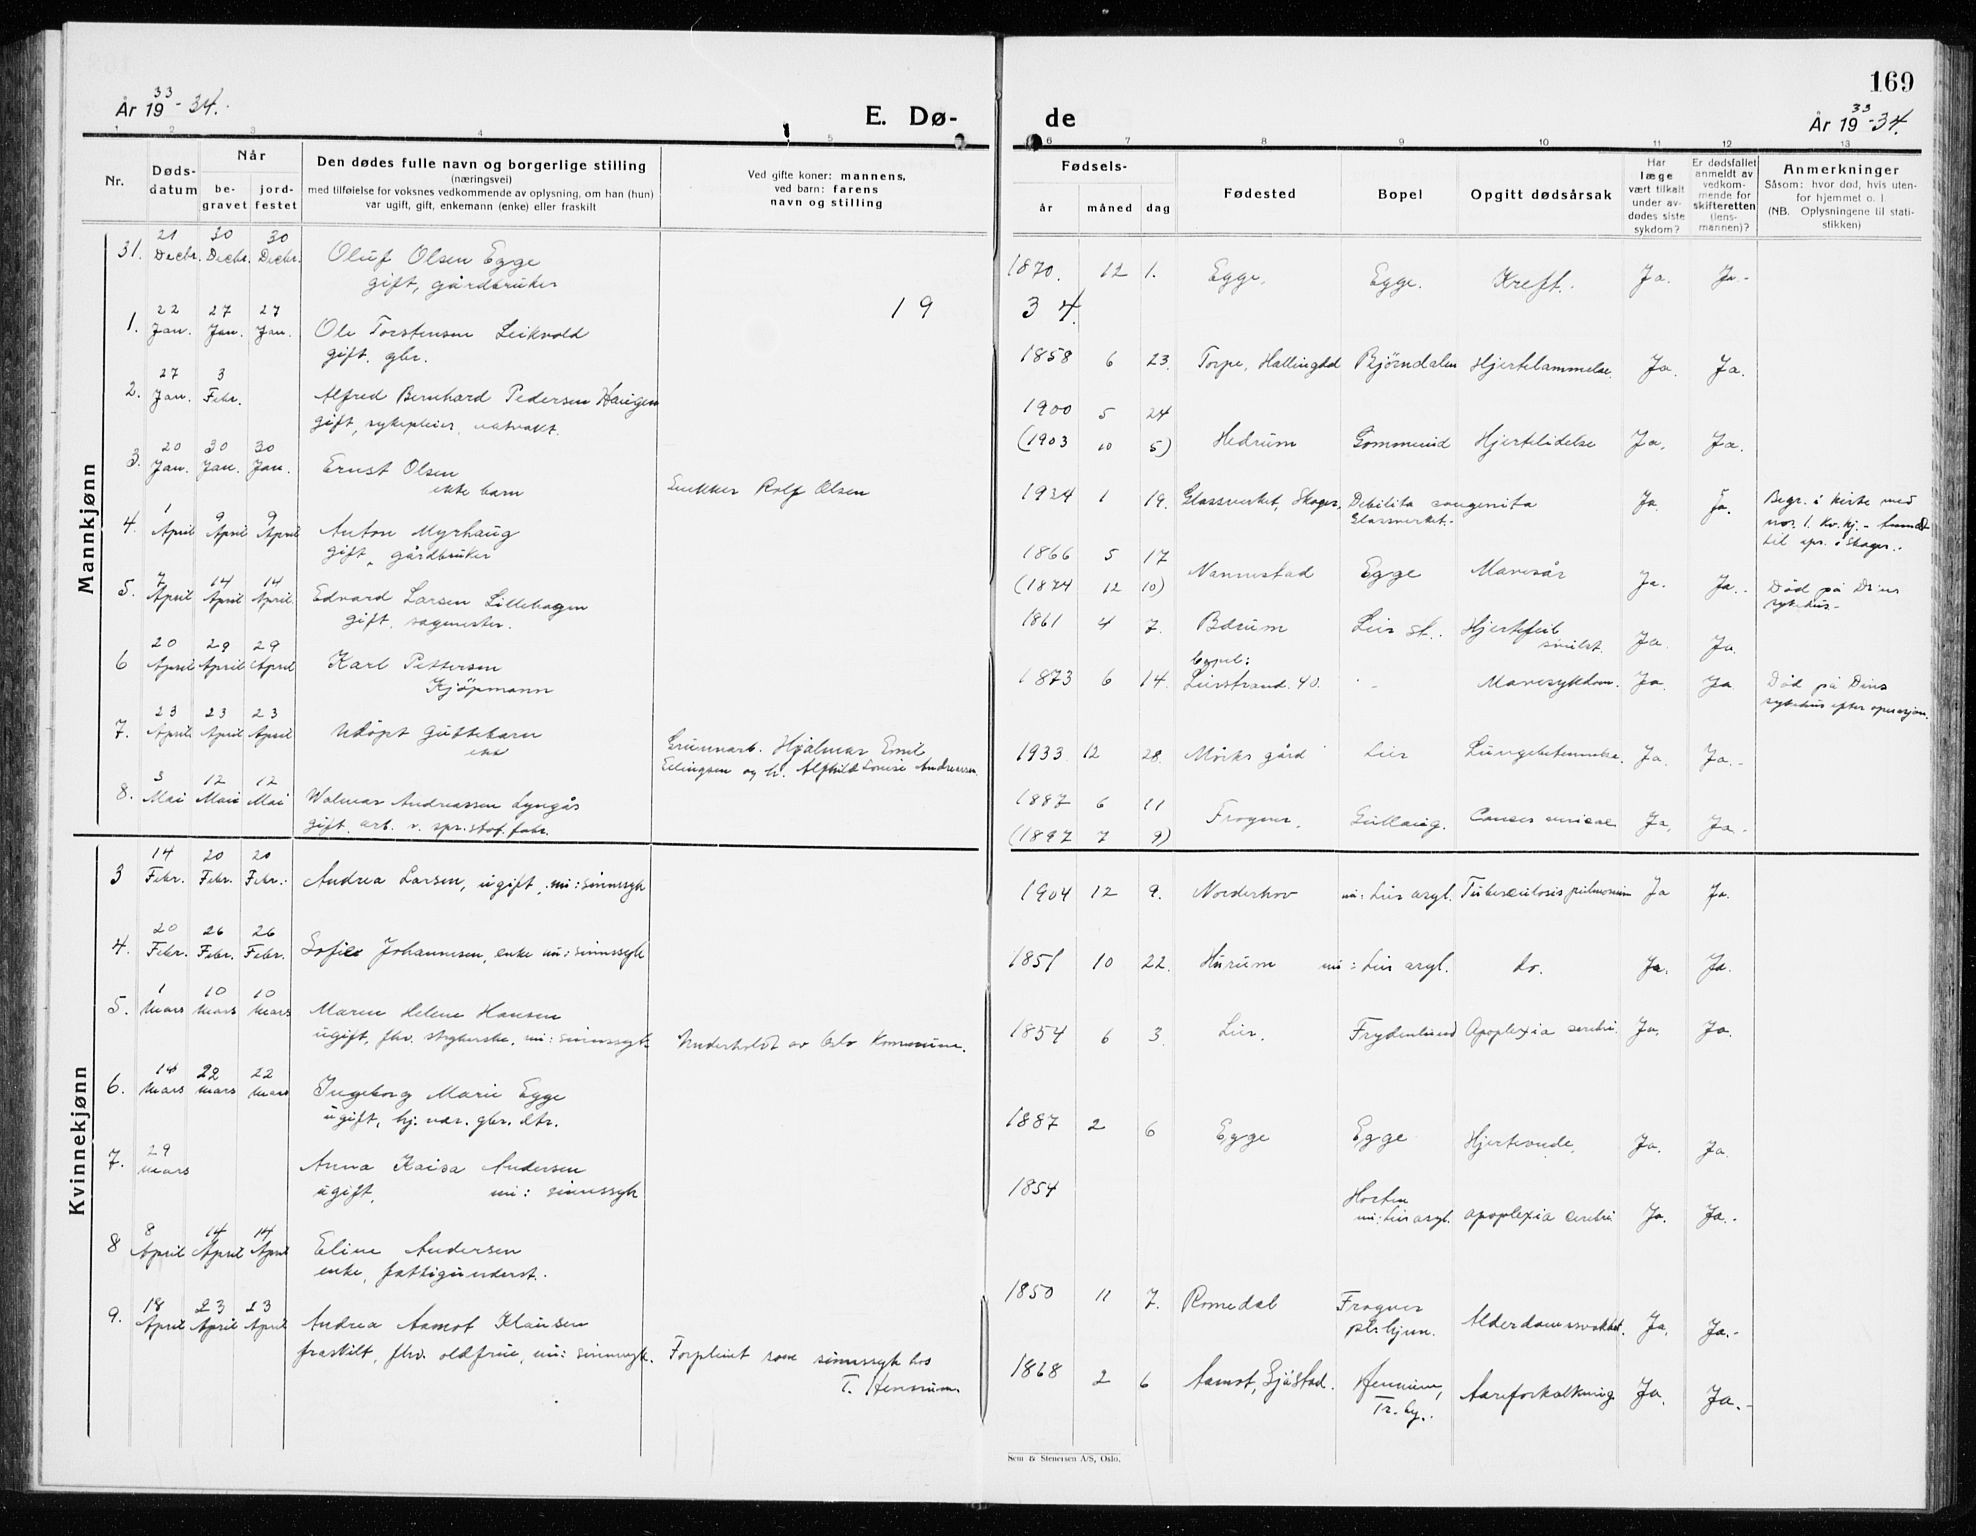 169
År 1933-34.
E. Dø-
de
År 1933-34.
1 2 3 4 5 6 7 8 9 10 11 12 13
Nr.
Døds-
datum
Når
be-
gravet
jord-
festet
Den dødes fulle navn og borgerlige stilling
(næringsvei)
med tilføielse for voksnes vedkommende av oplysning, om han (hun)
var ugift, gift, enkemann (enke) eller fraskilt
Ved gifte koner: mannens,
ved barn: farens
navn og stilling
Fødsels-
år måned dag
Fødested
Bopel
Opgitt dødsårsak
Har
læge
vært tilkalt
under av-
dødes siste
sykdom?
Er dødsfallet
anmeldt av
vedkom-
mende for
skifteretten
(lens-
mannen)?
Anmerkninger
Såsom: hvor død, hvis uten-
for hjemmet o. l.
(NB. Oplysningene til stati-
stikken)
Mannkjønn
31. 21 Decbr. 30 Decbr. 30 Decbr. Oluf Olsen Egge
gift, gårdbruker
1870. 12 1. Egge. Egge. Kreft. Ja. Ja.-
19 34.
1. 22 Jan. 27 Jan. 27 Jan. Ole Torstensen Leikvold
gift, gbr.
1858 6 23. Torpe, Hallingdal Bjørndalen Hjertelammelse. Ja. Ja.
2. 27 Jan. 3 Febr. Alfred Bernhard Pedersen Haugen
gift, sykepleier, natvakt.
1900 5 24
(1903 10 5) Hedrum Gommerud Hjertelidelse Ja. Ja.
3. 20 Jan. 30 Jan. 30 Jan. Ernst Olsen
ekte barn
Snekker Rolf Olsen
1934 1 19. Glassverket, Skoger, Glassverket.- Debilita congenita Ja. Ja.
Begr. i kiste med
nr. 1. Kv.kj. -
til spr. i Skoger.
4. 1 April 9 April 9 April Anton Myrhaug
gift, gårdbruker
1866 5 17
(1874 12 10) Nannestad Egge Mavesår Ja. Ja.- Død på D/ns
sykehus-
5. 7 April 14 April 14 April. Edvard Larsen Lillehagen
gift, sagmester.
1861 4 7. Bærum Lier st. Hjertefeil
Ja. Ja.
6 20 April 29 April 29 April Karl Pettersen
Kjøpmann
1873 6 14. bopel:
Lierstrand. 40. Mavesykdom. Ja. Ja Død på D/ns
sykehus efter operasjon.
7. 23 April 23 April 23 April Udøpt guttebarn
ekte
Grunnarb. Hjalmar Emil
Ellingsen og h. Alfhild Louise Andreassen
1933 12 28. Mørks gård Lier Lungebetennelse. Ja. Ja.-
8. 3 Mai 12 Mai 12 Mai Walmar Andreassen Lyngås
gift, arb. v. spr.stof.fabr.
1887 6 11
(1897 7 9) Frogner, Gullaug. Cancer Ja, Ja-
Kvinnekjønn
3 14 Febr. 20 Febr. 20 Febr. Andrea Larsen, ugift, nu: sinnssyk
1904 12 9. Norderhov nu: Lier asyl. Tuberculosis pulmonum Ja Ja.
4. 20 Febr. 26 Febr. 26 Febr. Sofie Johannesen, enke nu: sinnssyk
1851 10 22. Hurum nu: Lier asyl. do. Ja. Ja.
5. 1 Mars 10 Mars 10 Mars Maren Helene Hansen
ugift, fhv. strykerske, nu: sinnssyk.
Underholdt av Oslo Kommune.
1854 6 3. Lier. Frydenlund Apoplexia cerebri. Ja. Ja.
6. 14 Mars 22 Mars 22 Mars Ingeborg Marie Egge
ugift, hj.vær. gbr. dtr.
1887 2 6 Egge Egge Hjerteonde. Ja. Ja.
7. 29 Mars Anna Kaisa Andersen
ugift, nu: sinnssyk
1854 Horten
nu: Lier asyl. apoplexia cerebri Ja. Ja.-
8 8 April 14 April 14 April Eline Andersen
enke, fattigunderst.
1850 11 7. Romedal Frogner
pl.hjem. Alderdomssvakhet. Ja. Ja.-
9. 18 April 23 April 23 April Andrea Aamot Klausen
fraskilt, fhv. oldfrue, nu: sinnssyk.
Forpleiet som sinnssyk hos
T. Hennum.
1868 2 6 Aamot, Sjåstad. Hennum,
Tr.by. Aareforkalkning Ja. Ja.-
Sem & Stenersen A/S, Oslo.